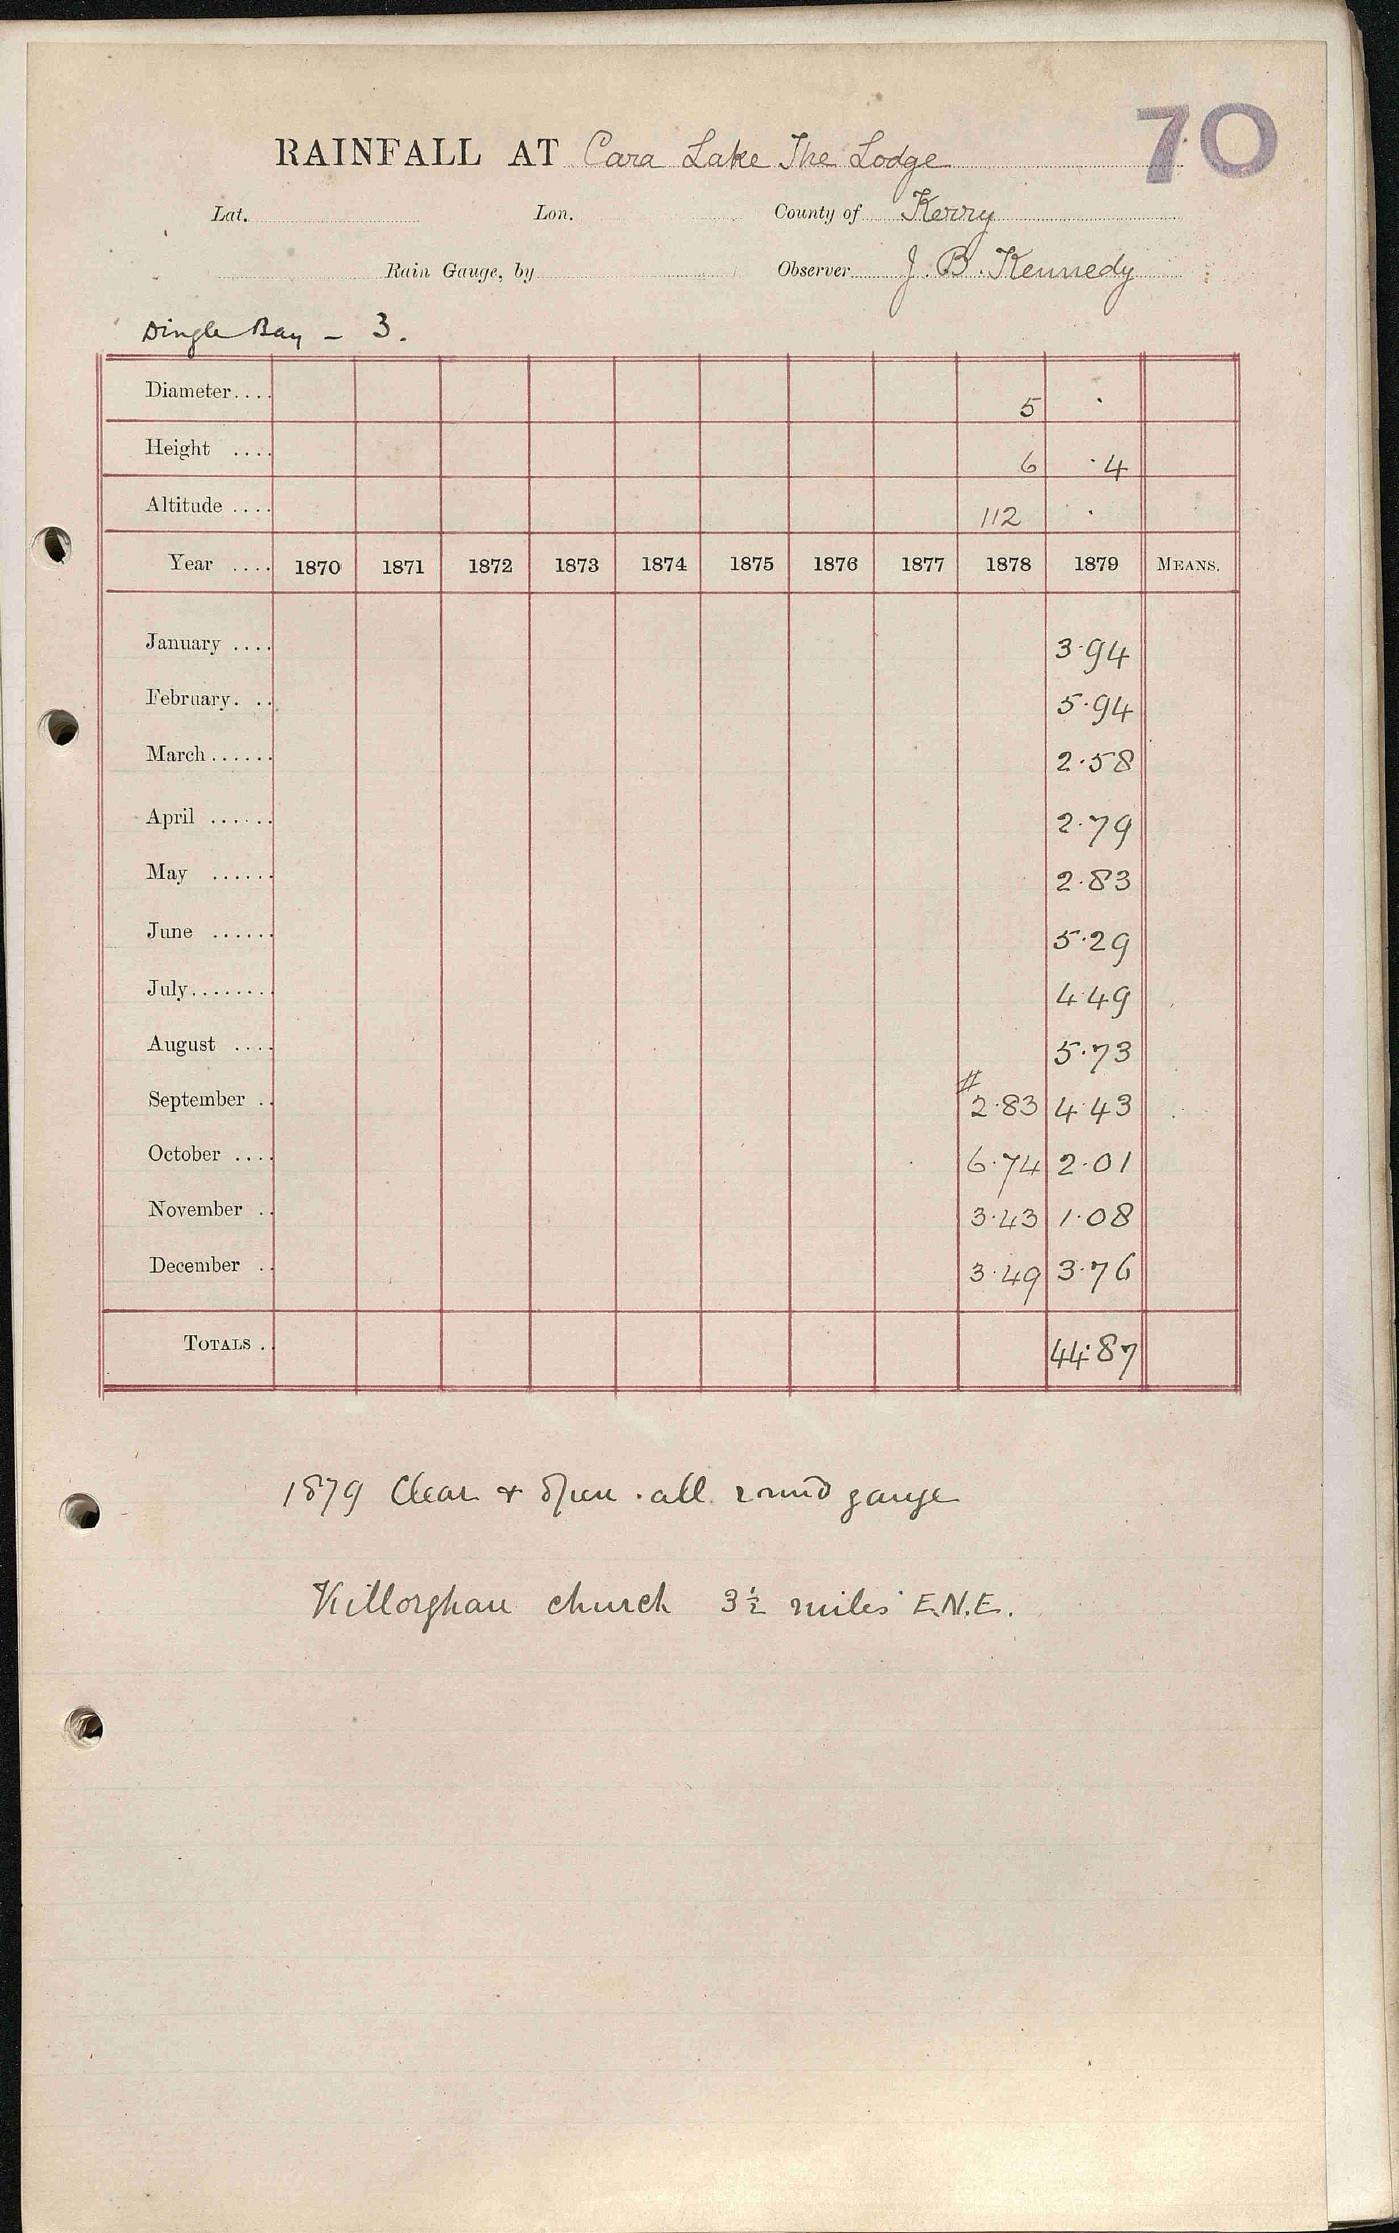 70
RAINFALL AT Cara Lake The Lodge
Lat. Lon. County of Kerry
Rain Gauge, by Observer J. B. Kennedy
Dingle Bay - 3.
Diameter.... 5 .
Height .... 6 ·4
Altitude .... 112 .
Year .... 1870 1871 1872 1873 1874 1875 1876 1877 1878 1879 MEANS.
January .... 3·94
February. .. 5·94
March...... 2·58
April ...... 2·79
May ...... 2·83
June ...... 5·29
July........ 4·49
August .... 5·73
September .. # 2·83 4·43
October .... 6·74 2·01
November .. 3·43 1·08
December .. 3·49 3·76
TOTALS .. 44·87
1879 Clear & open all round gauge
Killorghan church 3½ miles E.N.E.